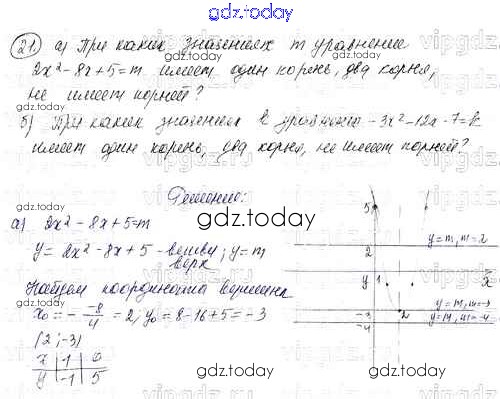 gdz.today
21. а) При каких значениях m уравнение
2x² - 8x + 5 = m имеет один корень, два корня,
не имеет корней?
gdz.today
б) При каких значениях k уравнение -3x² - 12x - 7 = k
имеет один корень, два корня, не имеет корней?
gdz.today
Решение:
а) 2x² - 8x + 5 = m
gdz.today
y = 2x² - 8x + 5 - ветви вверх; y = m
Найдем координаты вершины
gdz.today
x₀ = - -8/4 = 2; y₀ = 8 - 16 + 5 = -3
(2; -3)
x | 1 | 0
y | -1 | 5
gdz.today
5
y = m, m = 2
2
y 1
x
y = m, m = -3
-3
2
y = m, m = -4
-4